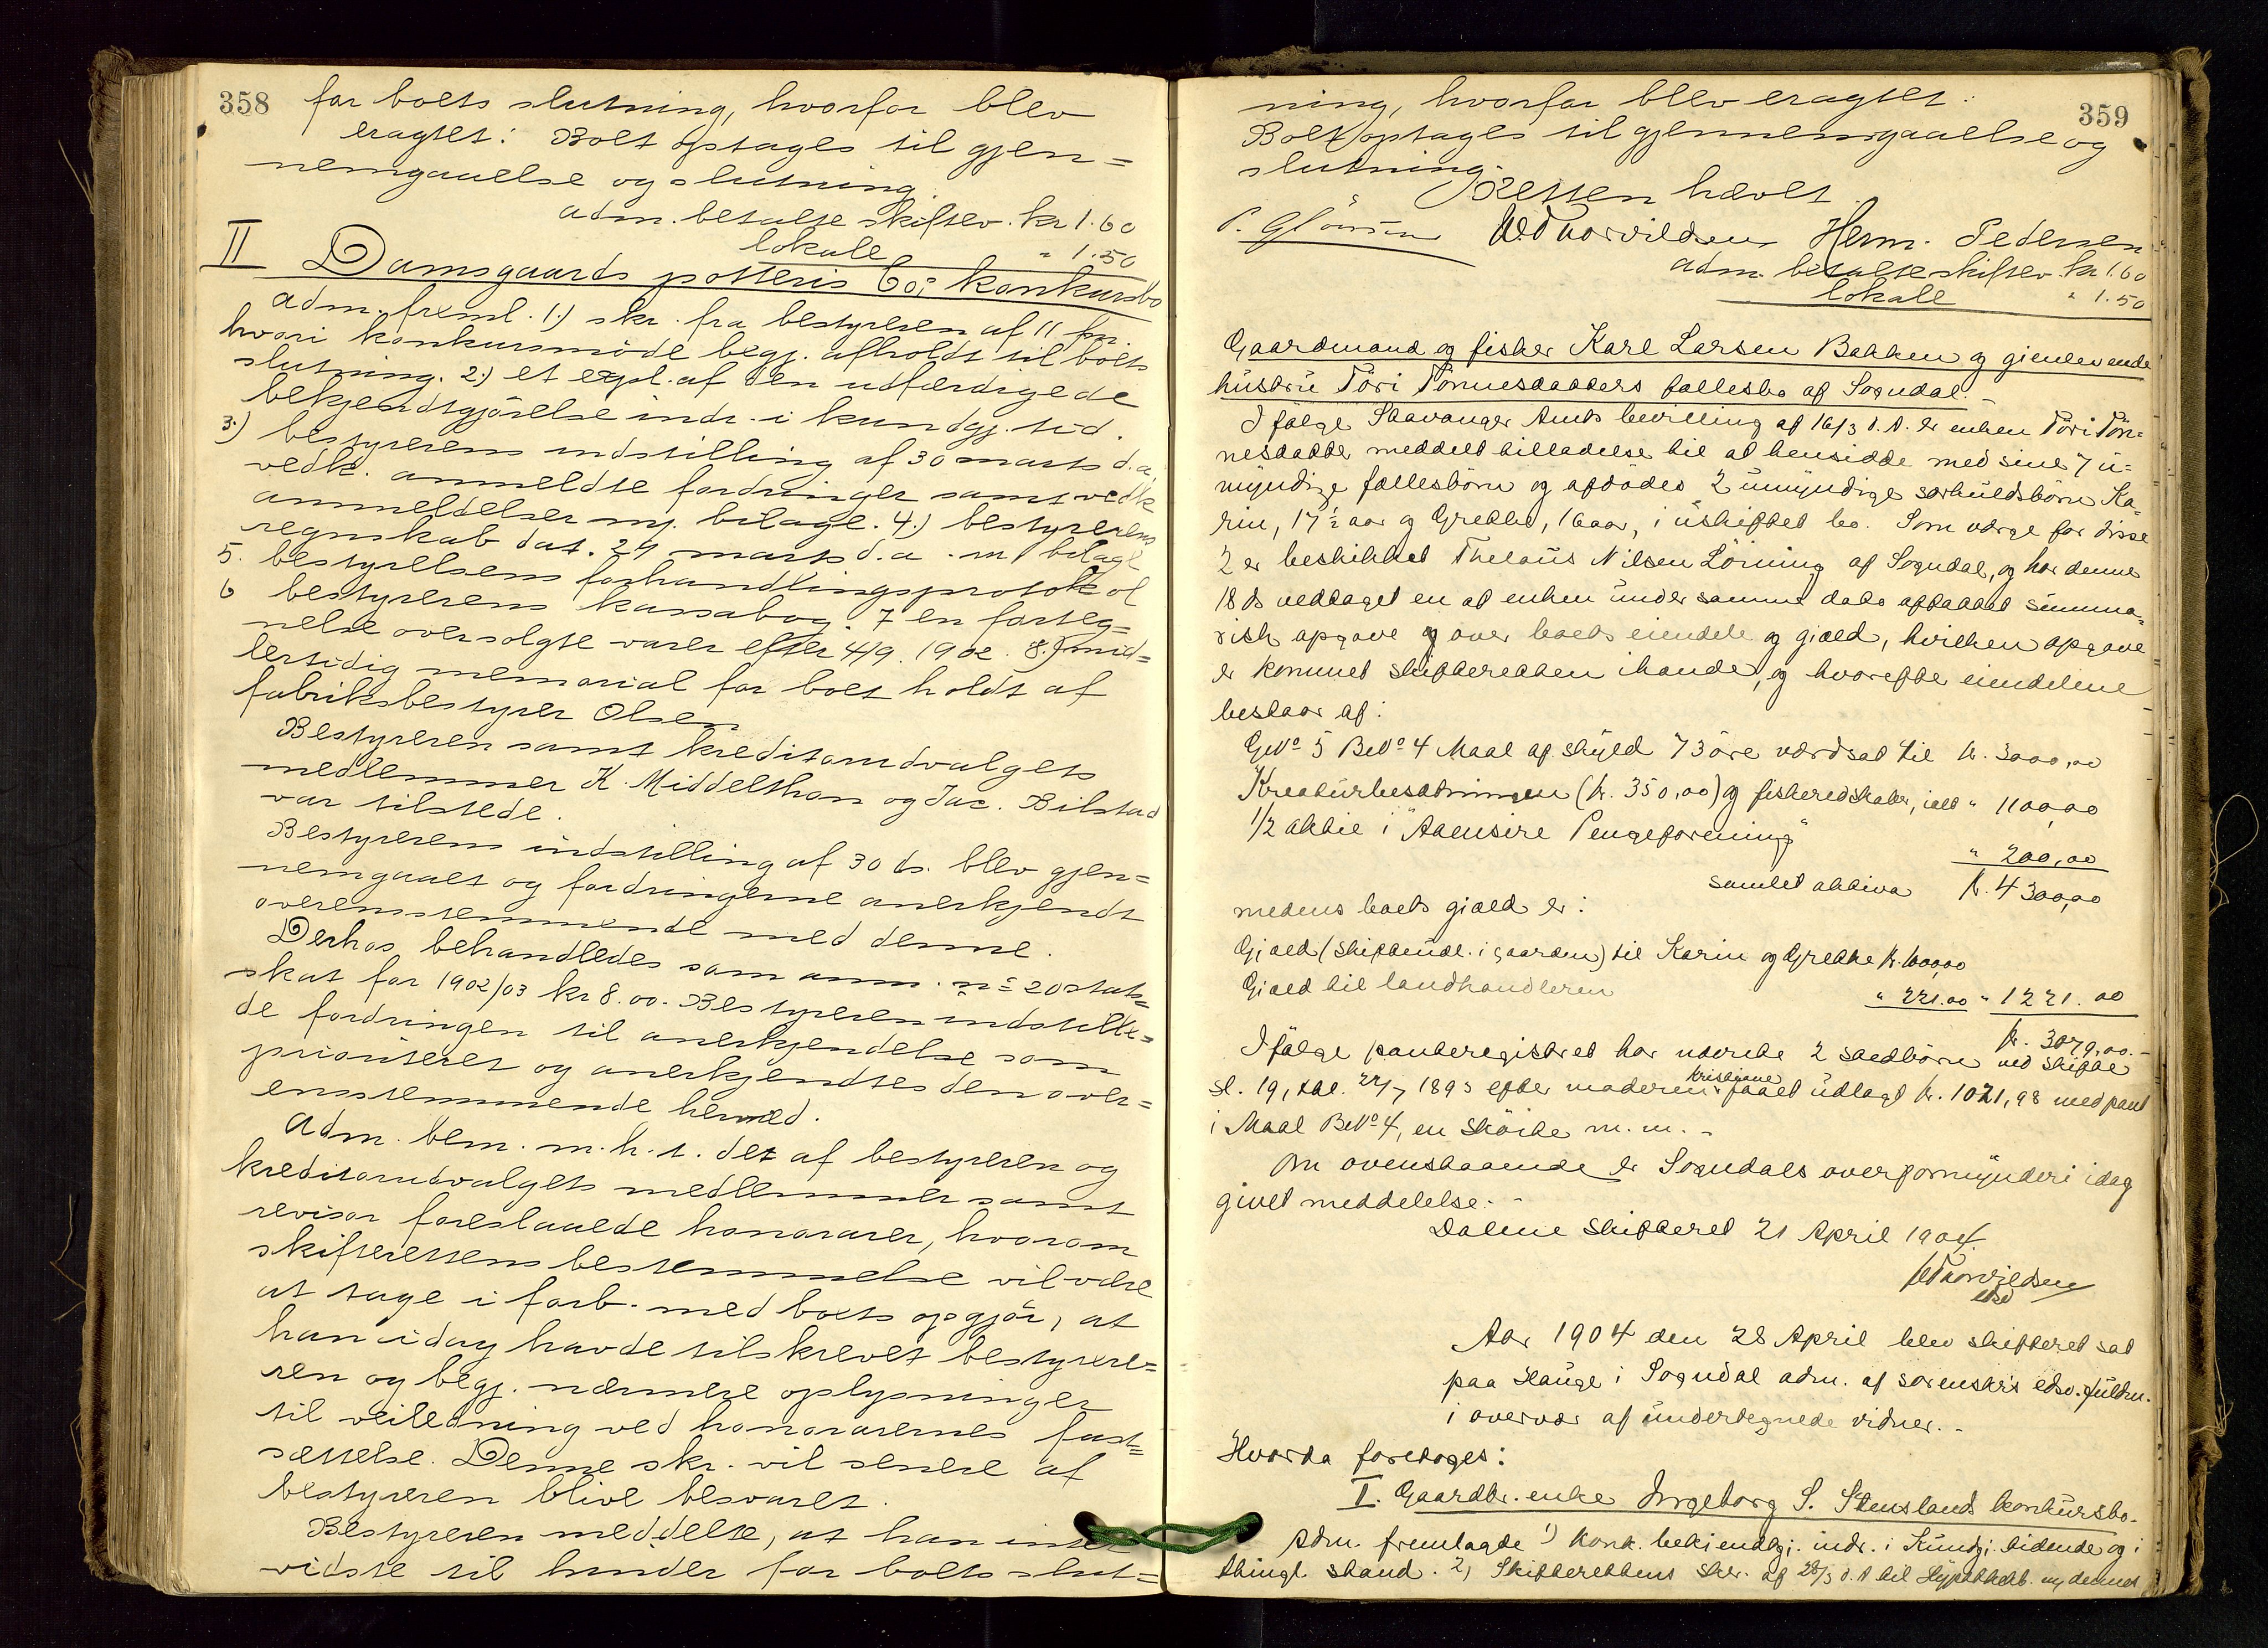 358
for boets slutning, hvorfor blev
eragtet: Boet optages til gjen=
nemgaaelse og slutning
adm. betalte skiftev. kr 1.60
lokale " 1.50
II Damsgaards potteris konkursbo
adm. freml. 1.) skr. fra bestyreren af 11
hvori konkursmøde begj. afholdt til boets
slutning. 2.) et expl. af den udfærdigede
bekjendtgjørelse indr. i kundgj. tid.
3.) bestyrerens indstilling af 30 marts d.a.
vedk. anmeldte fordringer samt vedk
anmeldelser m. bilage. 4.) bestyrerens
regnskab dat. 29 marts d.a. m bilage
5. bestyrelsens forhandlingsprotokol
6 bestyrerens kassabog. 7 en forteg=
nelse over solgte varer efter 4/9. 1902. 8.) mid=
lertidig memorial for boet holdt af
fabriksbestyrer Olsen
Bestyreren samt kreditorudvalgets
medlemmer K. Middelthon og Jac. Bilstad
var tilstede.
Bestyrerens indstilling af 30 ds. blev gjen=
nemgaaet og fordringerne anerkjendt
overensstemmende med denne.
Derhos behandledes som anm. no 20 stats=
skat for 1902/03 kr 8.00. Bestyreren indstille=
de fordringen til anerkjendelse som
prioriteret og anerkjendtes den over=
ensstemmende hermed.
Adm. bem. m.h.t. det af bestyreren og
kreditorudvalgets medlemmer samt
revisor foreslaaede honorarer, hvorom
skifterettens bestemmelse vil være
at tage i forb. med boets opgjør, at
han idag havde tilskrevet bestyrere=
ren og begj. nærmere oplysninger
til veiledning ved honorarernes fast=
sættelse. Denne skr. vil senere af
bestyreren blive besvaret.
Bestyreren meddelte, at han intet
vidste til hinder for boets slut=
359
ning, hvorfor blev eragtet:
Boet optages til gjennemgaaelse og
slutning.
Retten hævet.
W. Thorvildsen Herm. Pedersen
adm. betalte skiftev. kr 1.60
lokale " 1.50
Gaardmand og fisker Karl Larsen Bakken og gjenlevende
hustru Töri Tönnesdatters fællesbo af Sogndal.-
Ifölge Stavanger Amts bevilling af 16/3 d.A. er enken Töri Tön=
nesdatter meddelt tilladelse til at hensidde med sine 7 u=
myndige fællesbörn og afdödes 2 umyndige særkuldsbörn Ka=
rin, 17½ aar og Grethe, 16 aar, i uskiftet bo. Som værge for disse
2 er beskikket Thelaus Nilsen Löining af Sogndal, og har denne
18 ds vedtaget en af enken under samme dato aftattet summa=
risk opgave og over boets eiendele og gjæld, hvilken opgave
er kommet skifteretten ihænde, og hvorefter eiendelene
bestaar af:
GNo 5 BNo 4 Maal af skyld 73 öre værdsat til kr. 3000,00
Kreaturbesætningen (kr. 350,00) og fiskeredskaber, ialt " 1100,00
1/2 aktie i "Aaensire Pengeforening" " 200,00
samlet aktiva kr. 4300,00
medens boets gjæld er:
Gjæld (skifteudl. i gaarden) til Karin og Grethe kr. 1000,00
Gjæld til landhandleren " 221.00 " 1221.00
kr. 3079,00.-
Ifölge panteregistret har nævnte 2 stedbörn ved skifte
sl. 19, tgl. 22/7 1893 efter moderen Kristiane faaet udlagt kr. 1021,98 med pant
i Maal BNo 4, en sköite m. m. -
Om ovenstaaende er Sogndals overformynderi idag
givet meddelelse.-
Dalene skifteret 21 April 1904.
W Thorvildsen
Aar 1904 den 28 April blev skifteret sat
paa Hauge i Sogndal adm. af sorenskr's edsv. fuldm.
i overvær af undertegnede vidner.-
Hvorda foretoges:
I. Gaardbr. enke Ingeborg S. Stenslands konkursbo.
Adm. fremlagde 1) konk. bekjendtgj. indr. i Kundgj. tidende og i
thingl. stand. 2) Skifterettens skr. af 28/3 d.A til